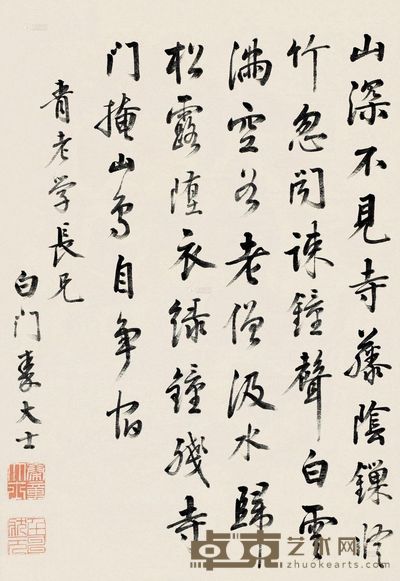 山深不見寺藤陰鎖修
竹忽闻疎鐘聲白雲
滿空谷老僧汲水歸
松露墮衣綠鐘殘寺
门掩山鳥自爭宿
青老学長兄
白门秦大士
卓克艺术网
zhuokearts.com